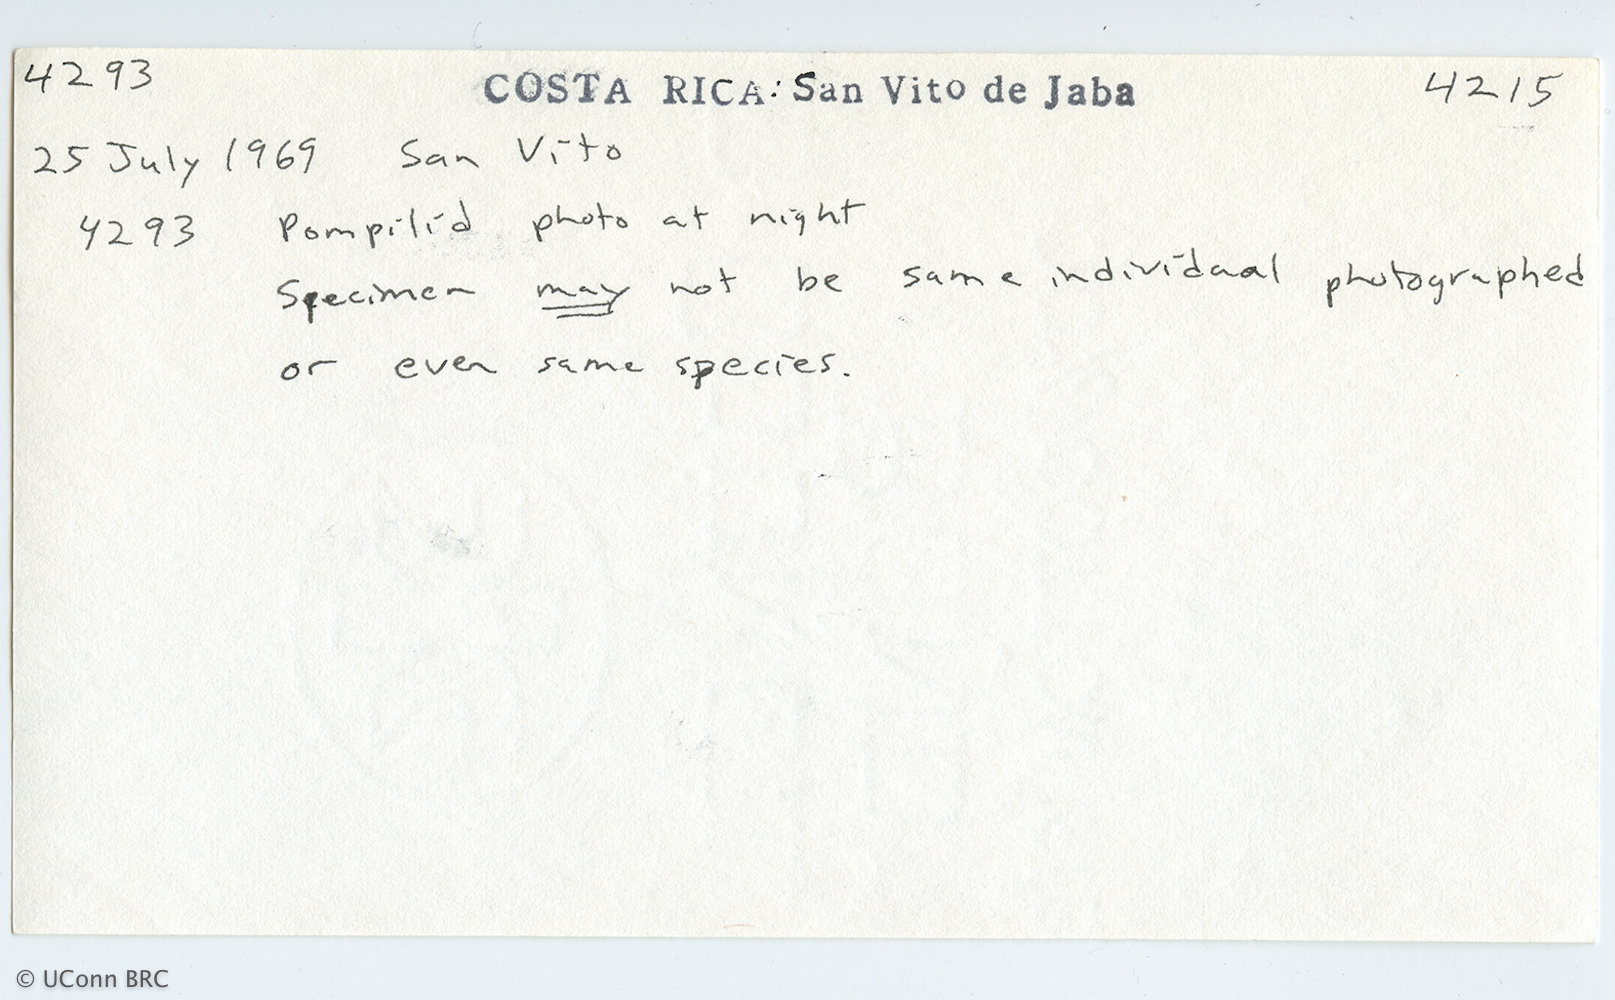 4293 COSTA RICA: San Vito de Jaba 4215
25 July 1969 San Vito
4293 Pompilid photo at night
Specimen may not be same individual photographed
or even same species.
© UConn BRC